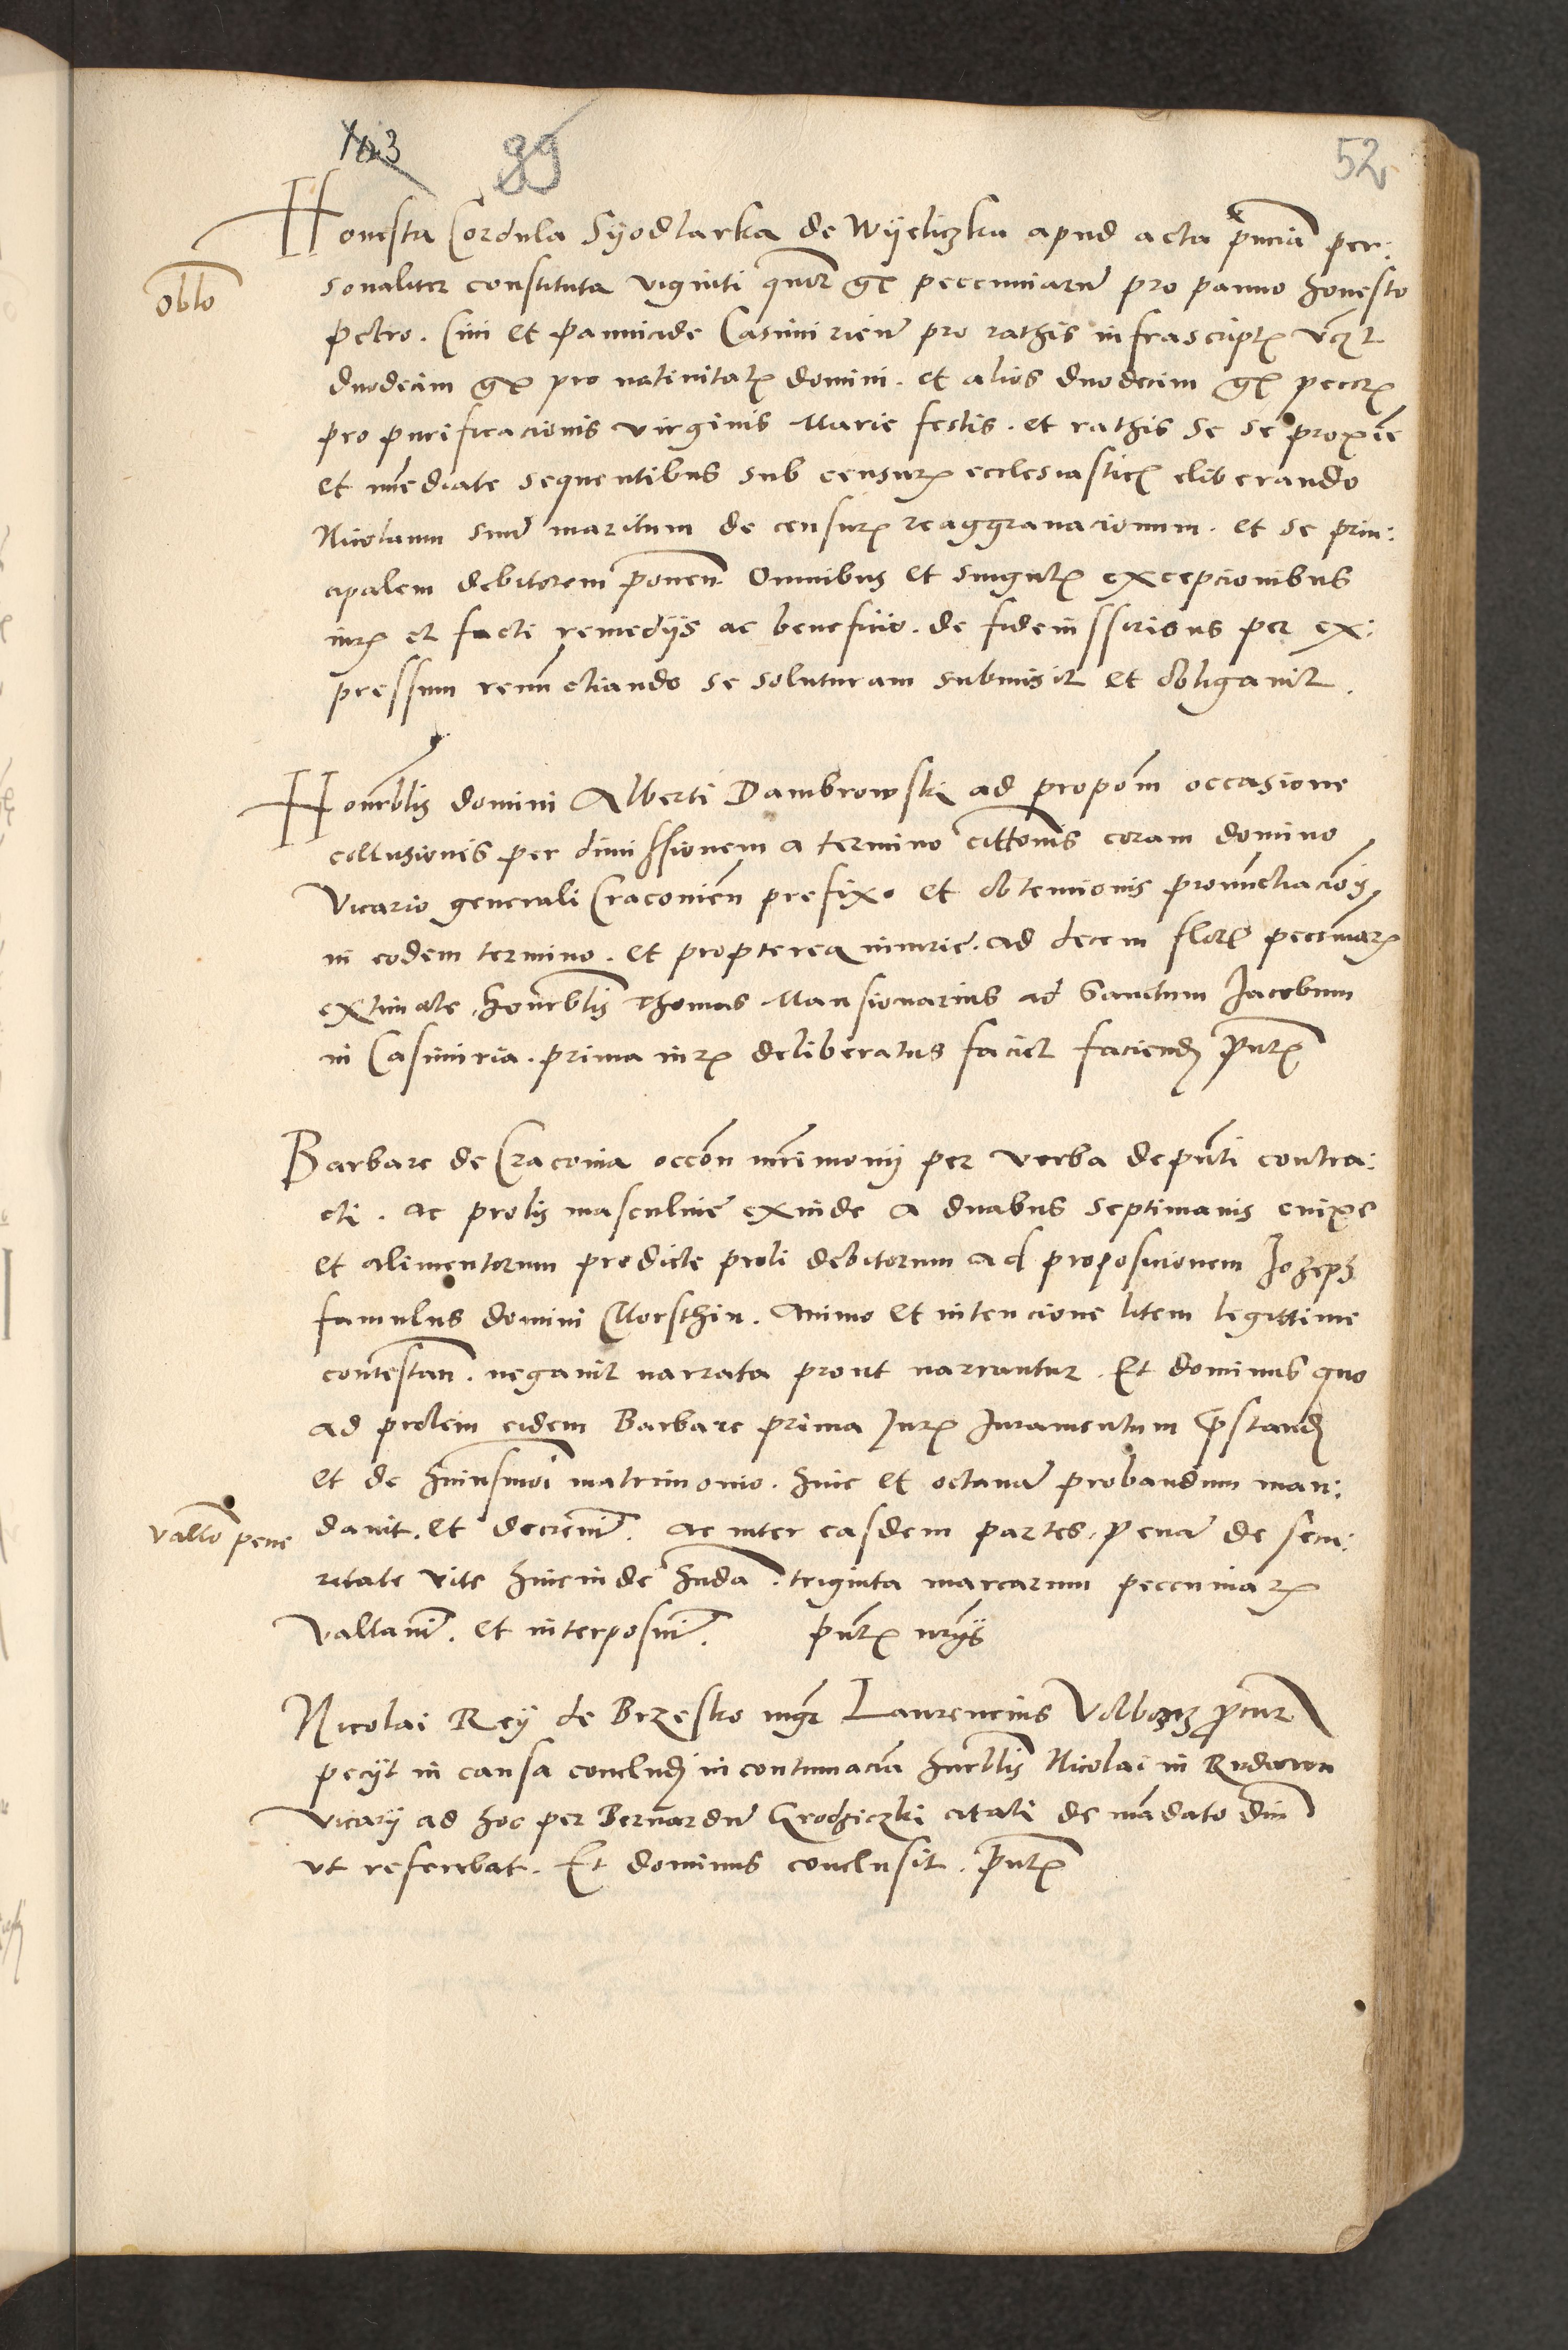 103 89 52
Honesta Cordula Syodlarka de Wyeliczka apud acta pñciã per:
oblo
sonaliter constituta viginti quor gr pecuniarũ pro panno honesto
Petro. Cini et pannicide Casimirień pro rathis infrascriptꝭ vcꝫt
duodecim gr pro nativitatꝭ domini. et alios duodecim gr pecꝭ
pro purificacionis virginis Marie festis. et rathis se se proxiẽ
et imẽdiate sequentibus sub censurꝭ ecclesiasticꝭ eliberando
Nicolaum suũ maritum de censurꝭ reaggravacionum. et se prin:
cipalem debitorem poneñ Omnibus et singulꝭ excepcionibus
iurꝭ et facti remedijs ac beneficio. de fideiussoribus per ex:
pressum renũctiando se soluturam submisit et obligavit.
Honrblis domini Alberti Dambrowski ad propoñ occasione
collusionis per dimissionem a termino cittonis coram domino
Vicario generali Cracovień prefixo et obtencionis pronũctiacõis
in eodem termino. et propterea iniurie. ad decem florꝭ pecuniarꝭ
extimate, honrblis Thomas Mansionarius ad Sanctum Jacobum
in Casimiria. prima iurꝭ deliberatus faciet faciendꝭ pñtꝭ
Barbare de Cracovia occõn mr̃imonij per verba de pñti contra:
cti. ac prolis masculine exinde a duabus septimanis enixe
et alimentorum predicte proli debitorum ad proposicionem Jozeph
famulus domini Morsthin. Animo et intencione litem legittime
contestañ. negavit narrata prout narrantur. Et dominus quo
ad prolem eidem Barbare prima Jurꝭ Juramentum p̃standꝭ
et de huiusmoi matrimonio. hinc et octavã probandum man:
vallo pene
davit. et decrevit. ac inter easdem partes, penã de secu:
ritate vite hincinde hñda. triginta marcarum pecuniarꝭ
vallavit. et interposuit. pñtꝭ nr̃ijs
Nicolai Rey de Brzesko mgr Laurencius Wolborz pcur
pecijt in causa concludꝭ in contumaciã hnrblis Nicolai in Rudawa
vicarij ad hoc per Bernardũ Grodziczki citati de mãdato dñi
ut referebat. Et dominus conclusit. pñtꝭ